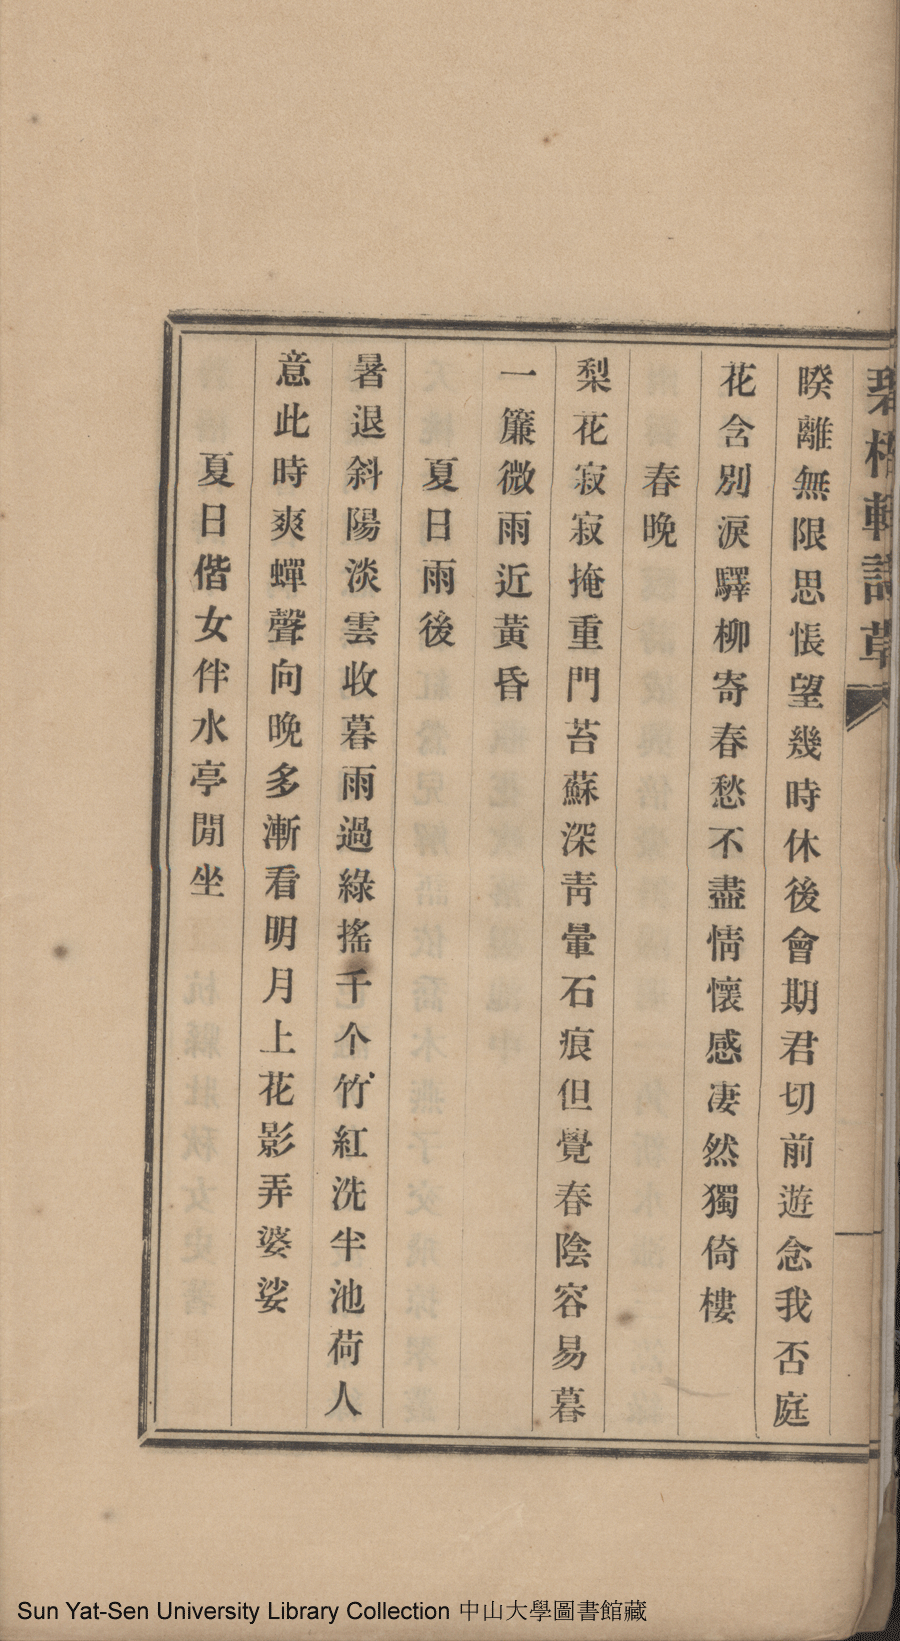 睽離無限思悵望幾時休後會期君切前遊念我否庭
花含別淚驛柳寄春愁不盡情懷感凄然獨倚樓
春晚
梨花寂寂掩重門苔蘇深靑暈石痕但覺春陰容易暮
一簾微雨近黃昏
夏日雨後
暑退斜陽淡雲收暮雨過綠搖千个竹紅洗半池荷人
意此時爽蟬聲向晚多漸看明月上花影弄婆娑
夏日偕女伴水亭閒坐
Sun Yat-Sen University Library Collection 中山大學圖書館藏